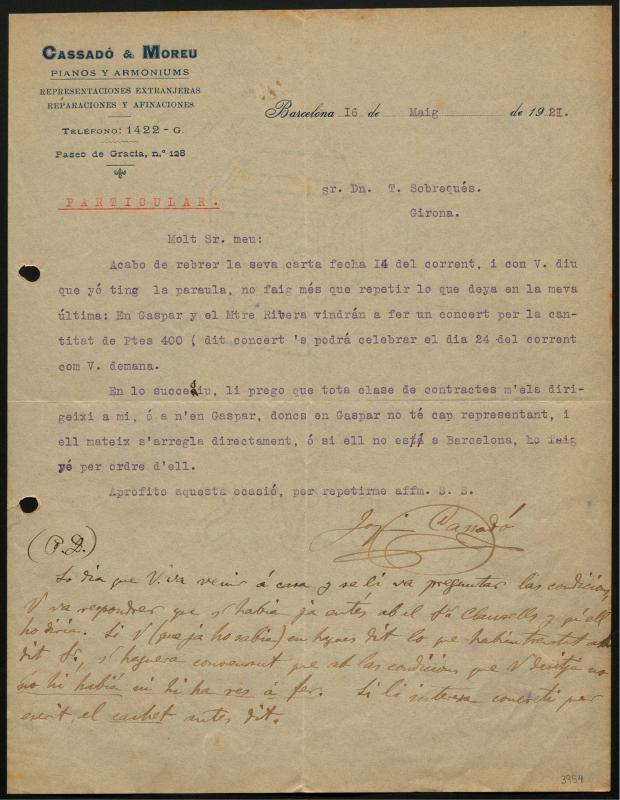 CASSADÓ & MOREU
PIANOS Y ARMONIUMS
REPRESENTACIONES EXTRANJERAS
REPARACIONES Y AFINACIONES
TELÉFONO: 1422 - G.
Paseo de Gracia, n.º 128
Barcelona I6 de Maig de 192I.
PARTICULAR.
sr. Dn. T. Sobrequés.
Girona.
Molt Sr. meu:
Acabo de rebrer la seva carta fecha I4 del corrent, i con V. diu
que yó ting la paraula, no faig més que repetir lo que deya en la meva
última: En Gaspar y el Mtre Rivera vindrán a fer un concert per la can-
titat de Ptes 400 ( dit concert 's podrá celebrar el dia 24 del corrent
com V. demana.
En lo succeiu, li prego que tota clase de contractes m'els diri-
geixi a mi, ó a n'en Gaspar, doncs en Gaspar no té cap representant, i
ell mateix s'arregla directament, ó si ell no está a Barcelona, ho faig
yó per ordre d'ell.
Aprofito aquesta ocasió, per repetirme affm. S. S.
Cassadó
(P.D.)
Lo dia que V. va venir á casa y se li va preguntar las condicions,
V va respondrer que s'habia ja entés ab el Sr Clausells y qu'ell
ho diria. Si V (que ja ho sabia) en hagues dit lo que habian tractat
dit Sr, s'haguera convensut que ab las condicions que V no
hi había ni hi ha res á fer. Si li interesa per
escrit, el cachet antes dit.
3954